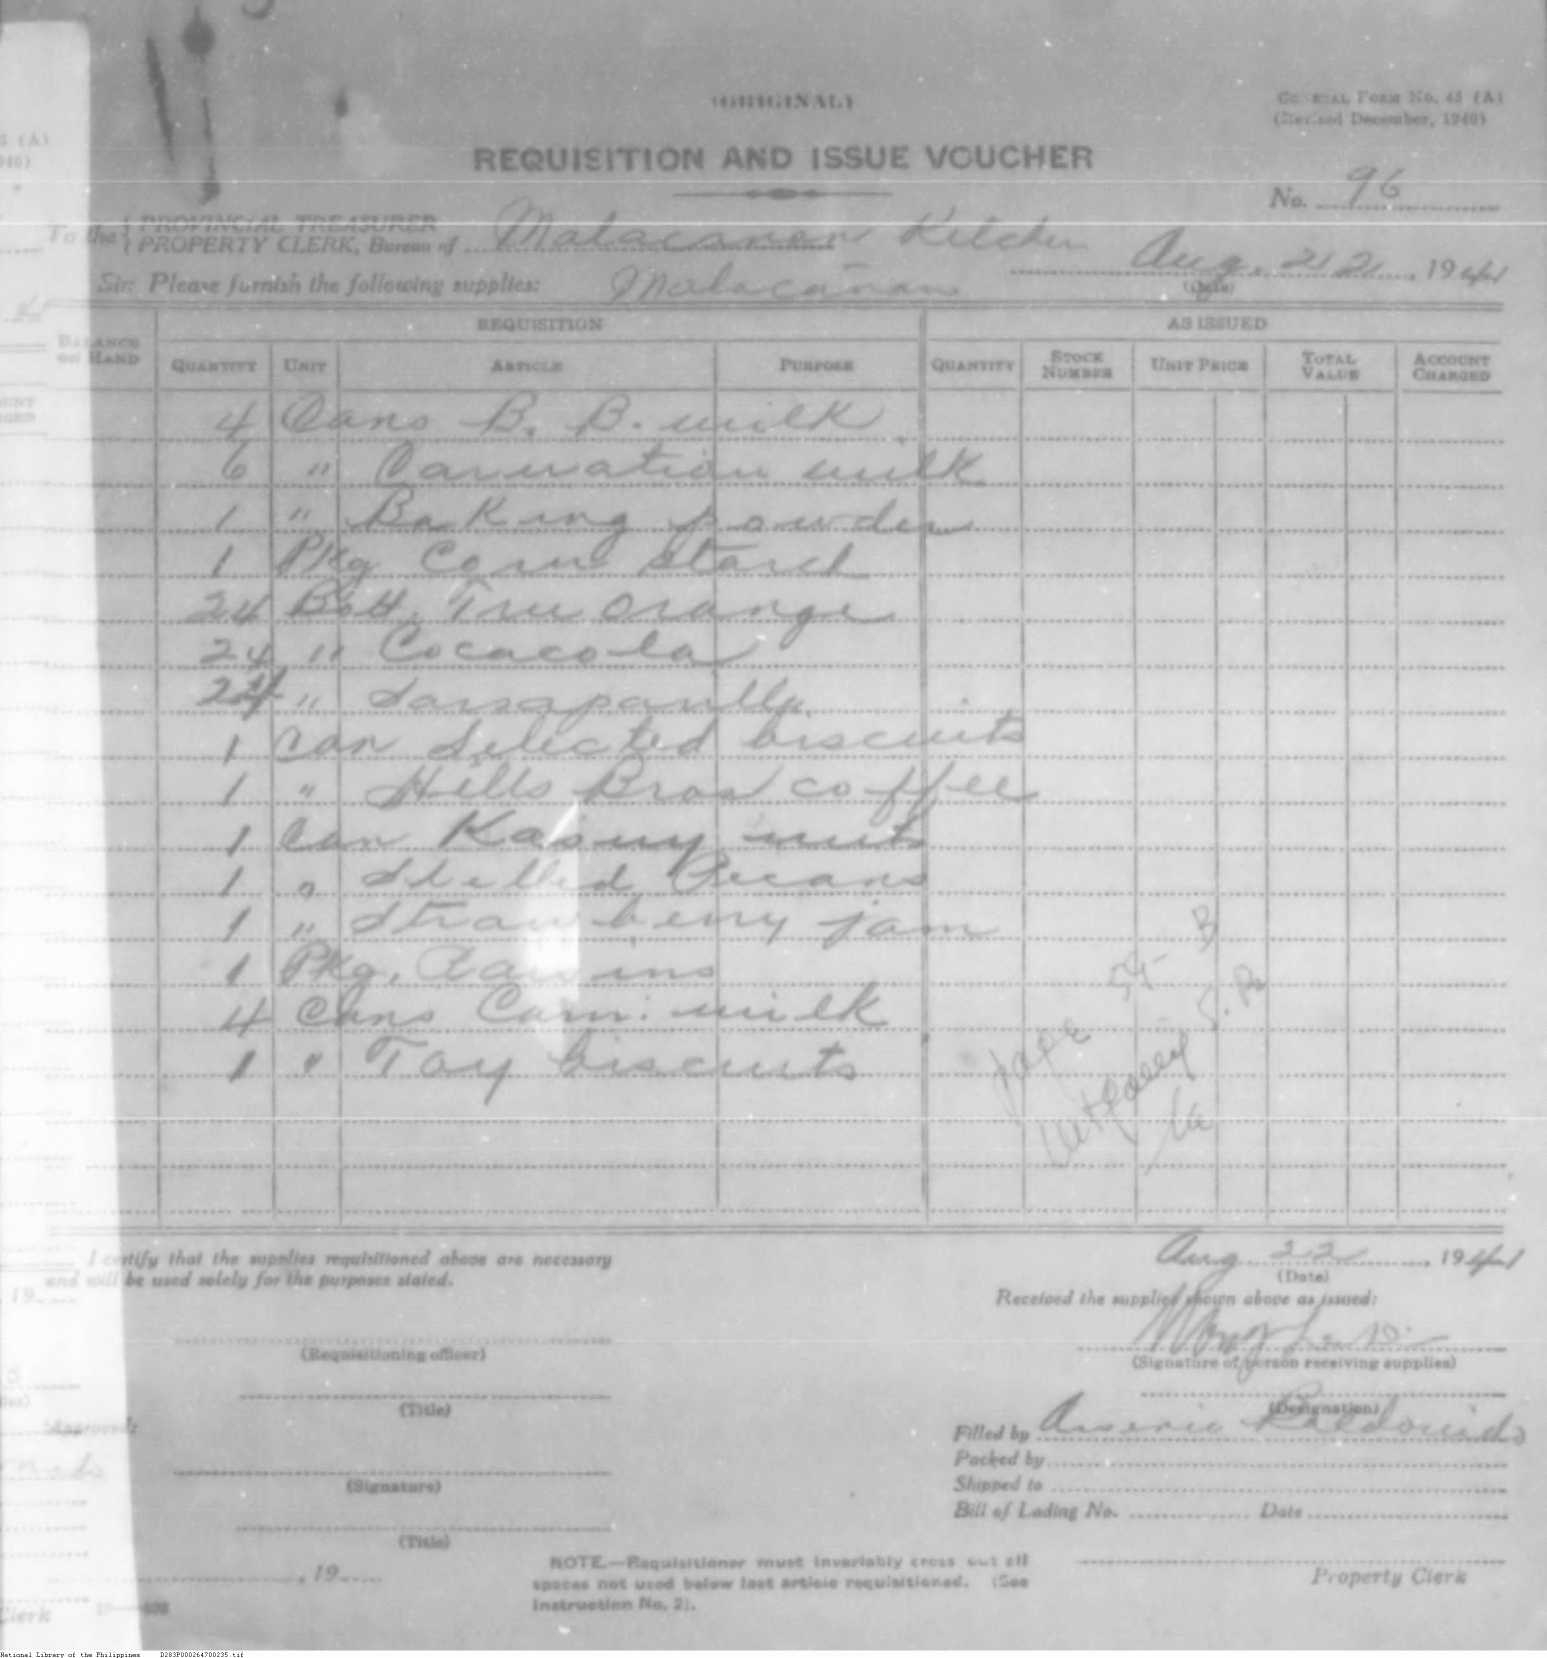 (ORIGINAL)
GENERAL FORM No. 45 (A)
(Revised December, 1940)
REQUISITION AND ISSUE VOUCHER
No. 96
To the { PROVINCIAL TREASURER
PROPERTY CLERK, Bureau of Malacanan Kitchen
Aug. 22, 1941
(Date)
Sir: Please furnish the following supplies: Malacañan
BALANCE ON HAND REQUISITION AS ISSUED
QUANTITY UNIT ARTICLE PURPOSE QUANTITY STOCK NUMBER UNIT PRICE TOTAL VALUE ACCOUNT CHARGED
4 Cans B. B. milk
6 " Carnation milk
1 " Baking powder
1 Pkg Corn starch
24 Bott. Tru orange
24 " Cocacola
24 " Sarsaparilla
1 Can Selected biscuits
1 " Hills Bros coffee
1 Can Kasuy nuts
1 " Shelled Pecans
1 " Strawberry jam
1 Pkg. Raisins
4 Cans Carn. milk
1 " Toy biscuits
I certify that the supplies requisitioned above are necessary
and will be used solely for the purposes stated.
Aug 22, 1941
(Date)
Received the supplies shown above as issued:
(Requisitioning officer)
(Signature of person receiving supplies)
(Title)
(Designation)
Approved:
Filled by Arsenio
Packed by
(Signature)
Shipped to
Bill of Lading No. Date
(Title)
, 19
NOTE.—Requisitioner must invariably cross out all
spaces not used below last article requisitioned. (See
Instruction No. 2).
Property Clerk
National Library of the Philippines D283P000264700235.tif